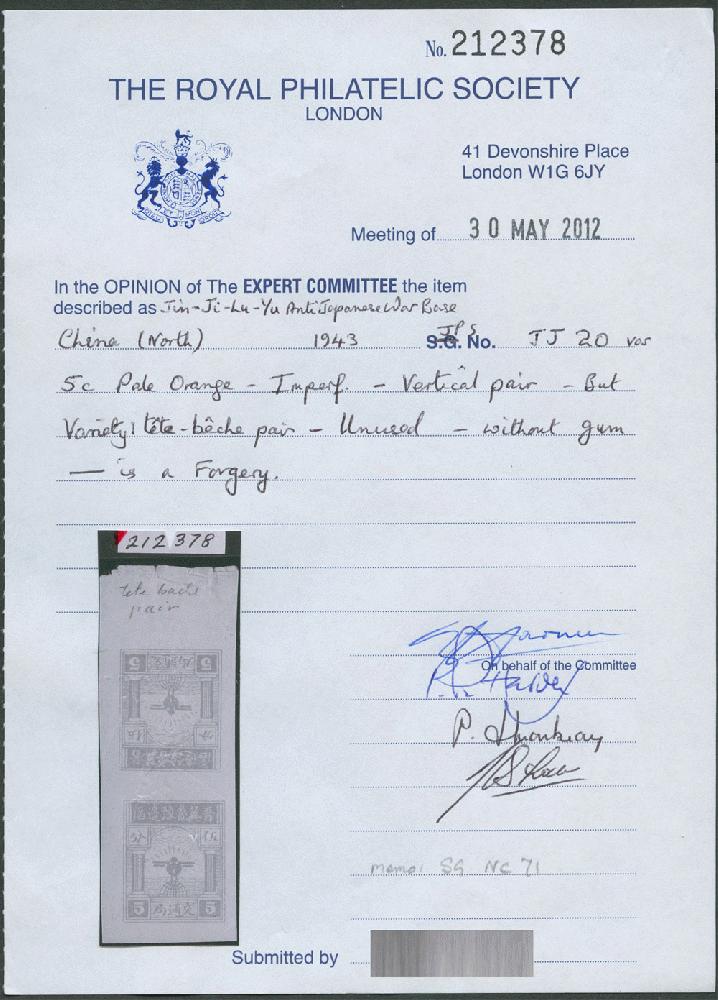 No. 212378
THE ROYAL PHILATELIC SOCIETY
LONDON
41 Devonshire Place
London W1G 6JY
Meeting of 30 MAY 2012
In the OPINION of The EXPERT COMMITTEE the item
described as Jin-Ji-Lu-Yu Anti Japanese War Base
China (North) 1943 S.G. JPS No. JJ 20 var
5c Pale Orange - Imperf. - Vertical pair - But
Variety! tête-bêche pair - Unused - without gum
— is a Forgery.
212378
pair
5 5
5 交通局 5
On behalf of the Committee
memo: SG NC 71
Submitted by